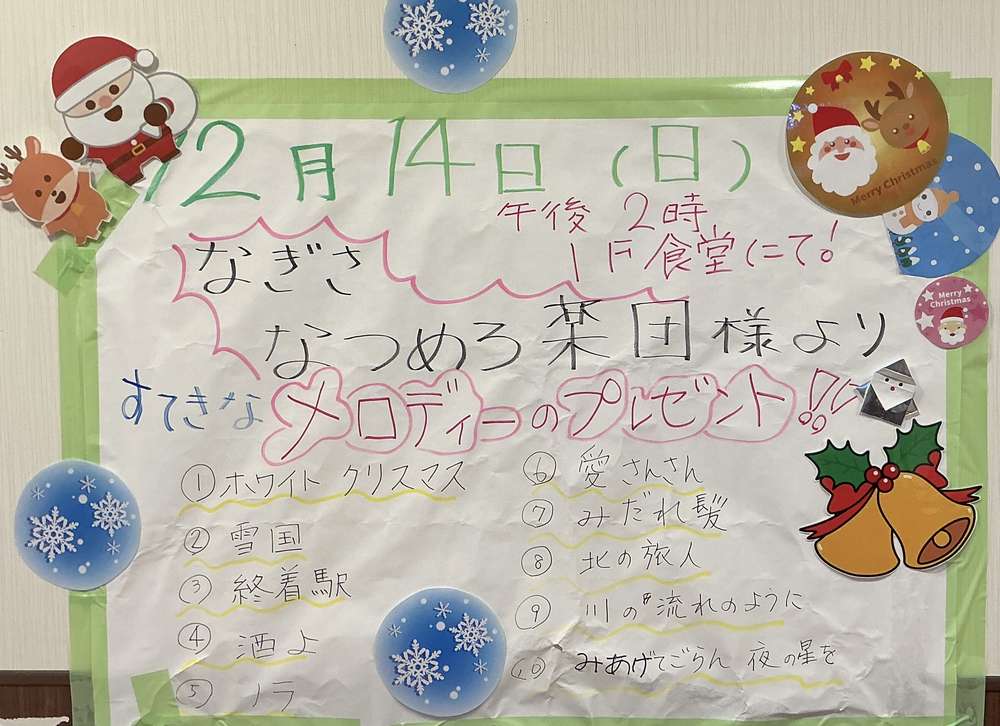 12月14日(日)
午後 2時
1F食堂にて!
なぎさ
なつめろ楽団様より
すてきな メロディーのプレゼント!!
① ホワイト クリスマス
② 雪国
③ 終着駅
④ 酒よ
⑤ ノラ
⑥ 愛さんさん
⑦ みだれ髪
⑧ 北の旅人
⑨ 川の流れのように
⑩ みあげてごらん 夜の星を
Merry Christmas
Merry Christmas